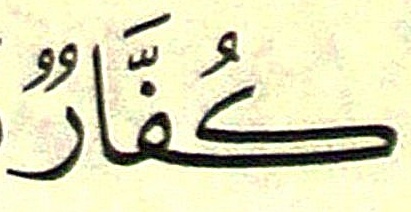 كُفَّارٌ